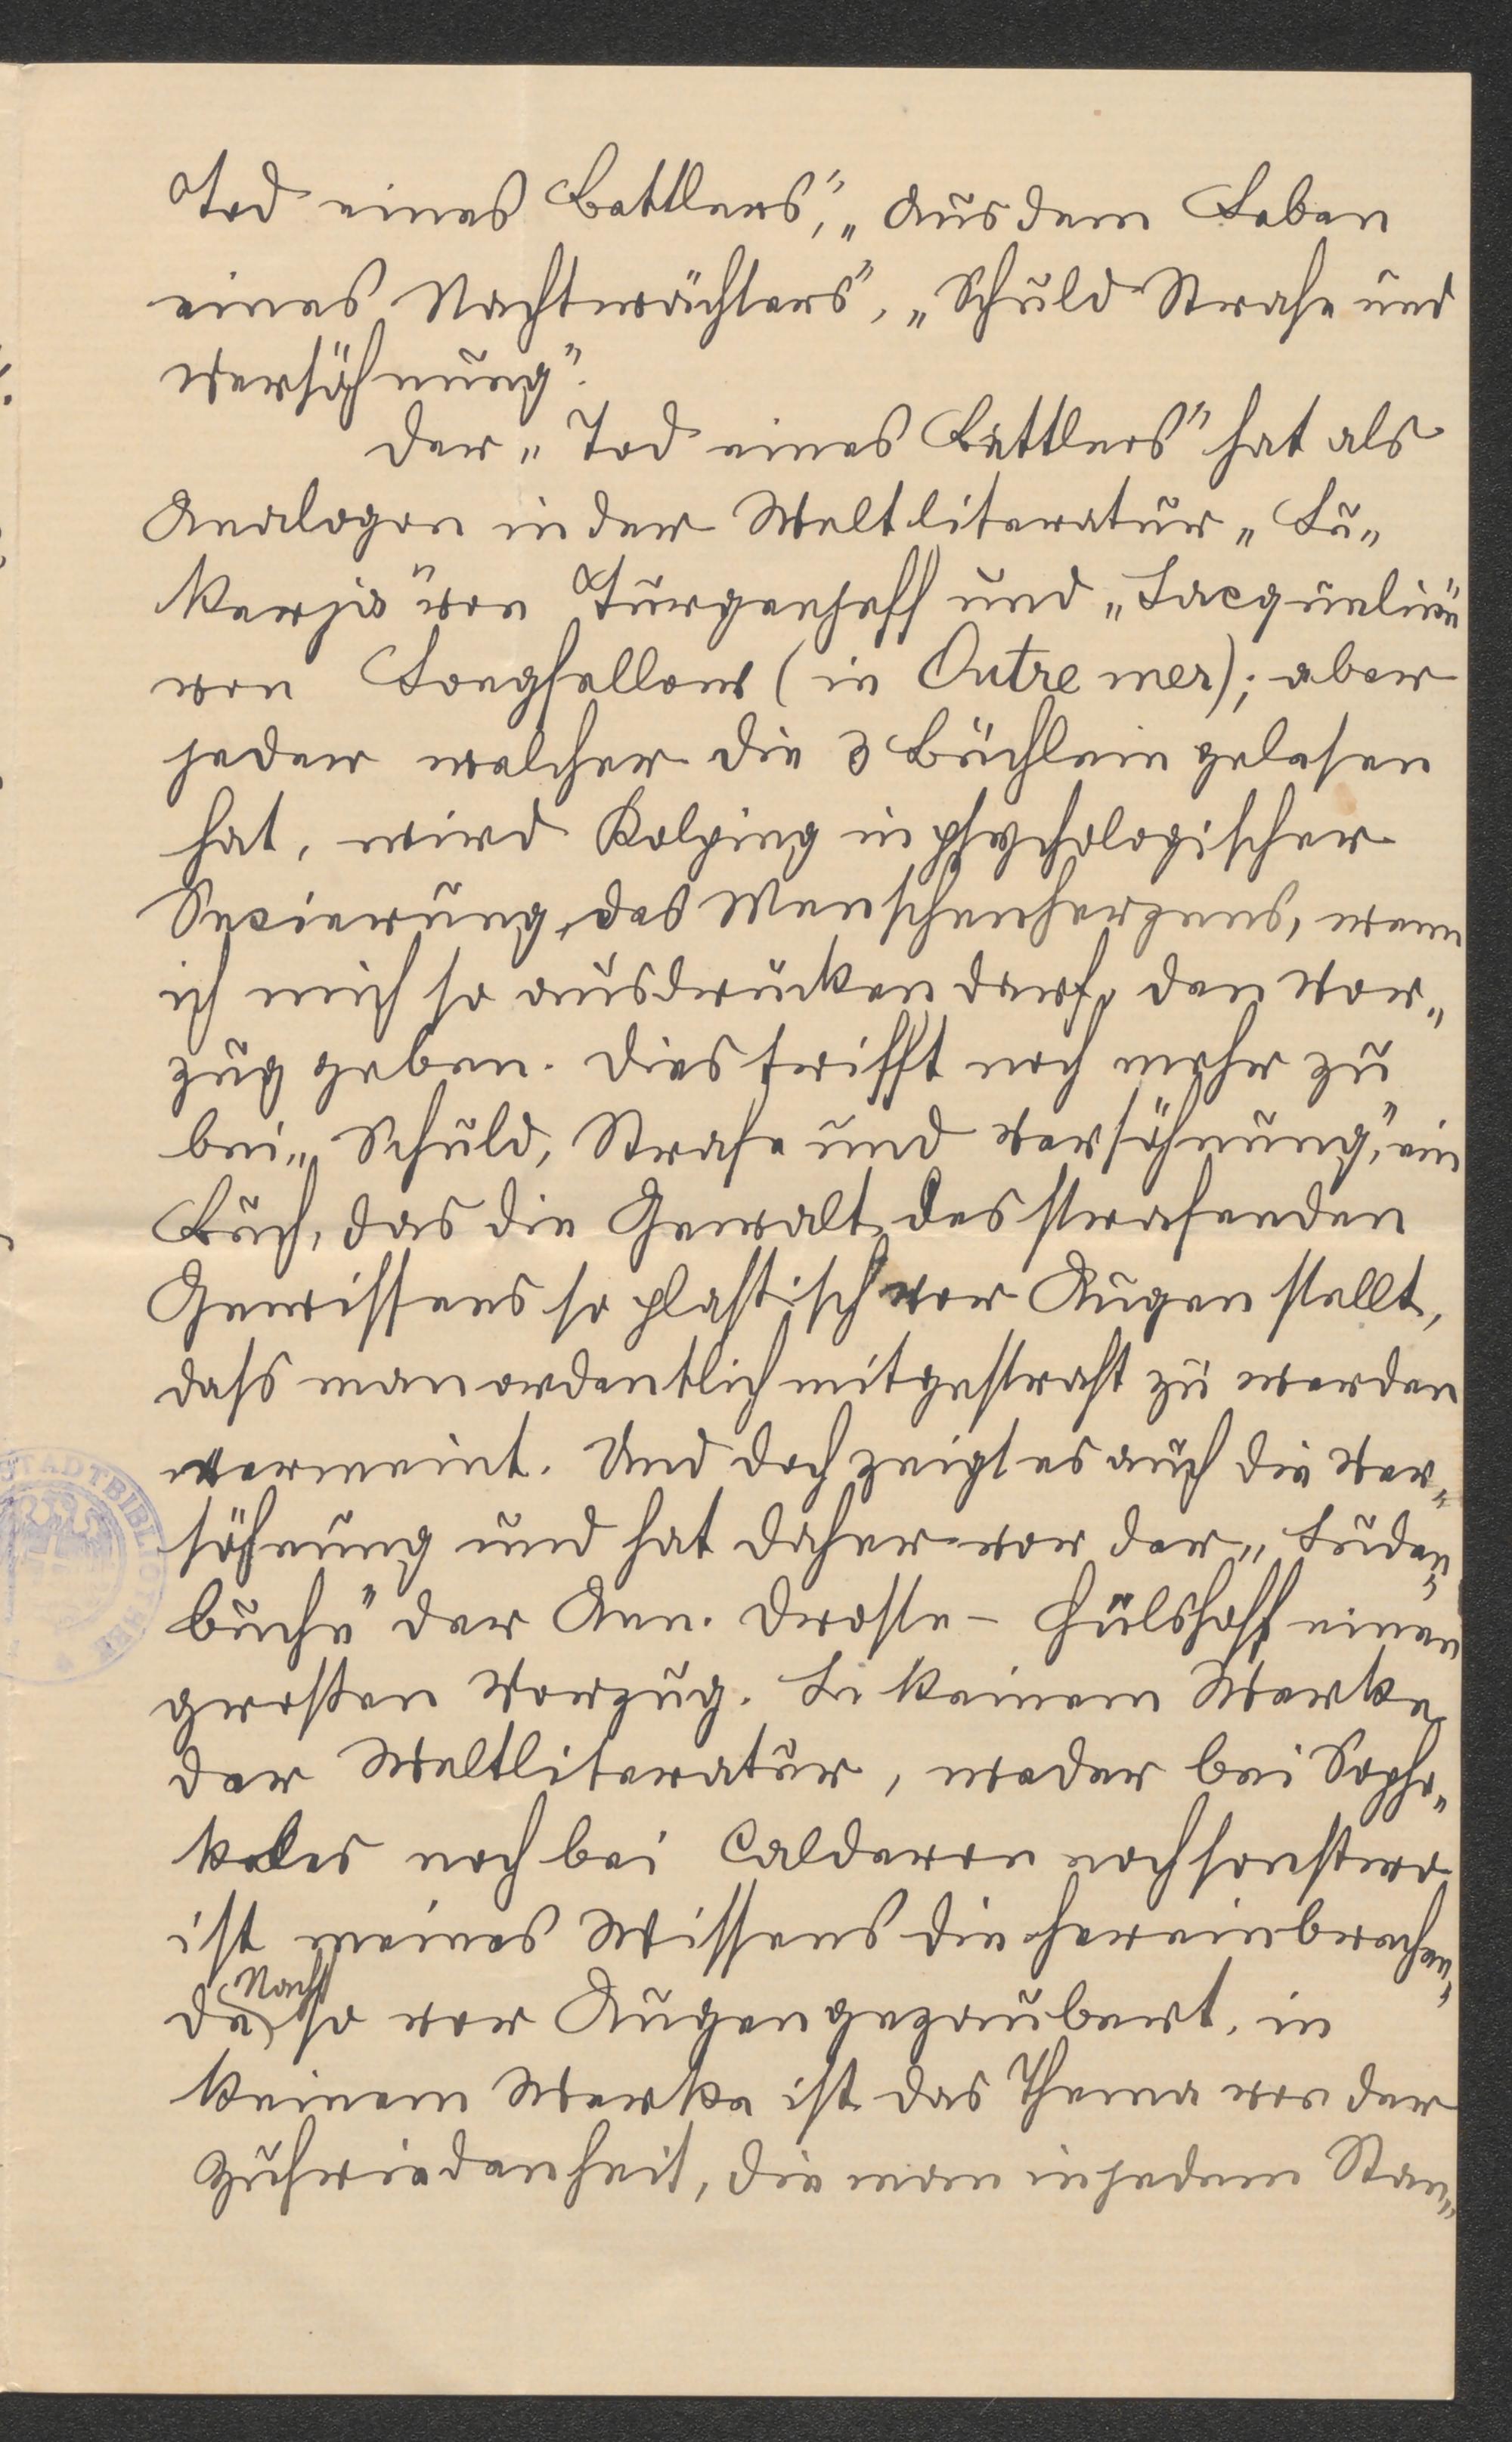 Tod eines Bettlers", „Aus dem Leben
eines Nachtwächters", „Schuld Strafe und
Versöhnung".
Der „Tod eines Bettlers" hat als
Analogon in der Weltliteratur „Lu„
kerjia" von Turgenjeff und „Jacqueline"
von Longfellow (in Outre mer); aber
jeder welcher die 3 Büchlein gelesen
hat, wird Kolping in psychologischer
Sezierung des Menschenherzens, wenn
ich mich so ausdrücken darf, den Vor„
zug geben. Dies trifft noch mehr zu
bei „Schuld, Strafe und Versöhnung", ein
Buch, das die Gewalt des strafenden
Gewissens so plastisch vor Augen stellt,
dass man ordentlich mitgestraft zu werden
vermeint. Und doch zeigt es auch die Ver„
söhnung und hat daher vor der „Juden„
buche" der Ann. Droste-Hülshoff einen
großen Vorzug. In keinem Werke
der Weltliteratur, weder bei Sopho„
kles noch bei Calderon noch sonstwo
ist meines Wissens die hereinbrechen„
de Nacht so vor Augen gezaubert, in
keinem Werke ist das Thema von der
Zufriedenheit, die man in jedem Stan„
STADTBIBLIOTHEK